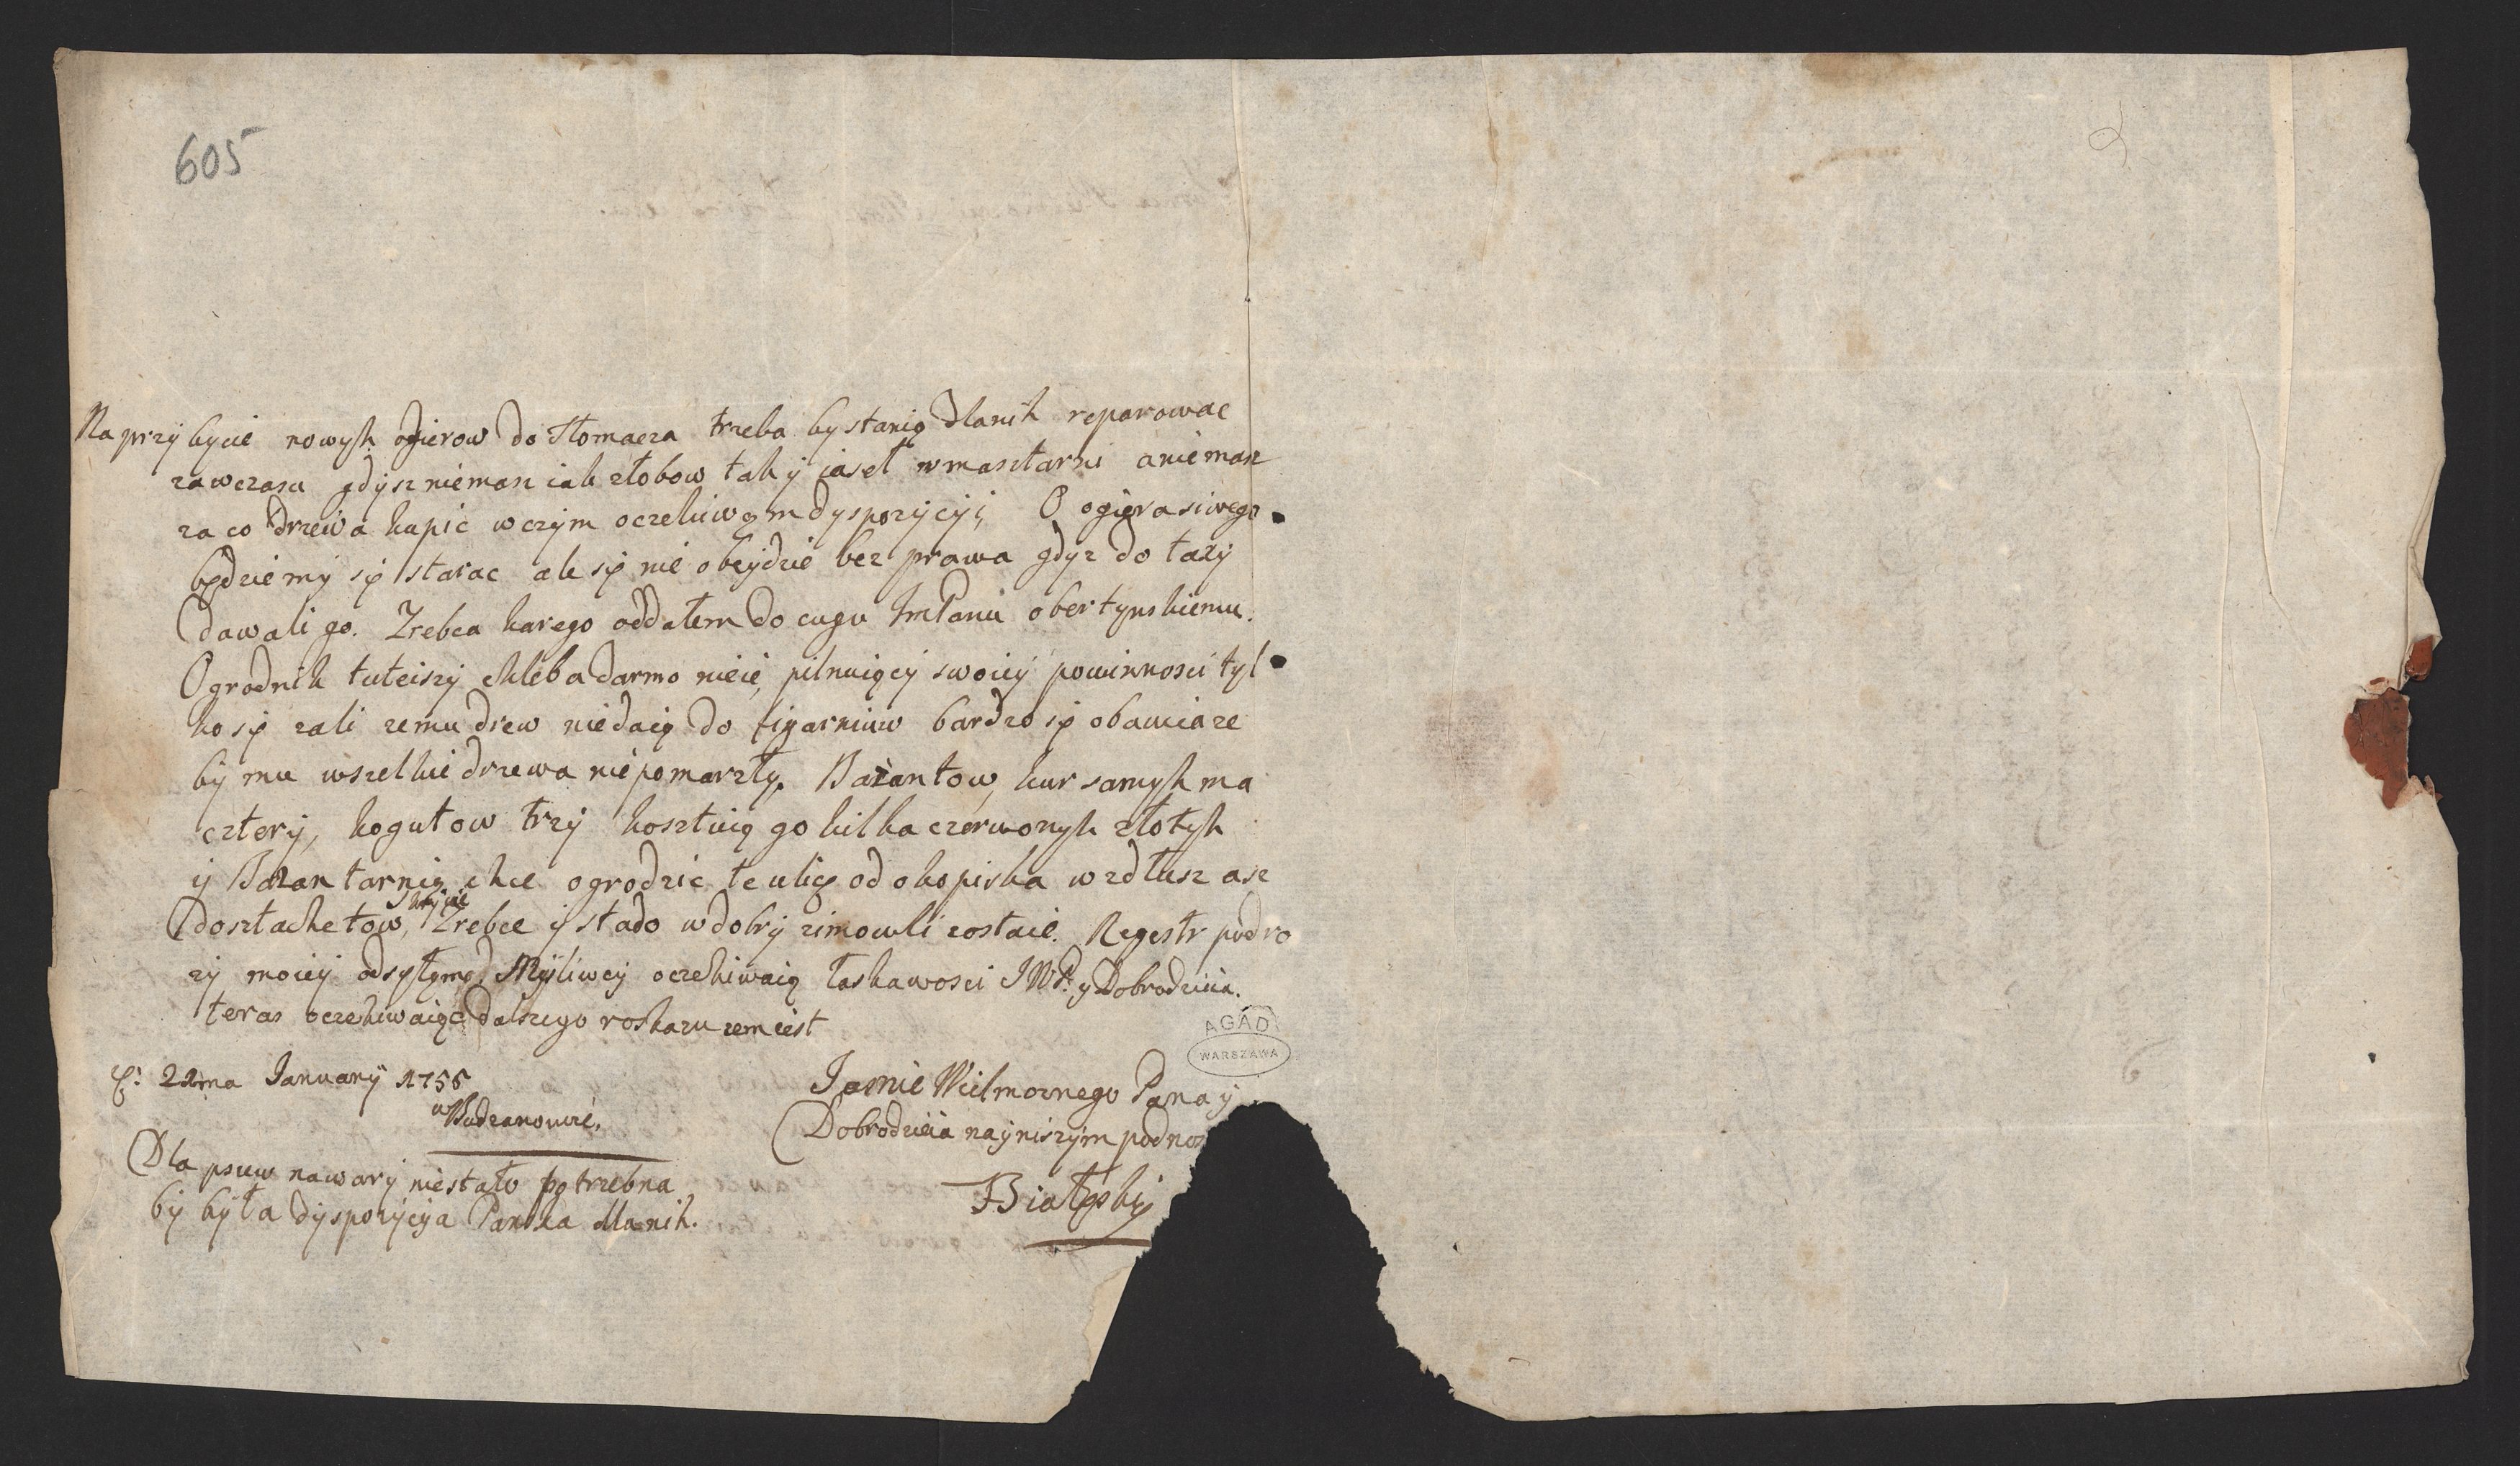 605
Na przybycie nowych ogierow do Tłomacza trzeba by stanią dlanih reparowac
zawczasu gdysz niemasz iak złobow tak y iaseł wmasztarni aniemasz
za co drzewa kupic wczym oczekiwam dyspozycyi, O ogiera siwego
będziemy się starac ale się nie obeydzie bez prawa gdyz do taxy
dawali go. Zrebca karego oddałem do cugu ImPanu obertynskiemu.
Ogrodnik tuteiszy chleba darmo nieie, pilnuiący swoiey powinnosci tyl
ko się zali zemu drew niedaią do figarniuw bardzo się obawia ze
by mu wszelkie drzewa niepomarzły. Bażantow, kur samych ma
cztery, kogutow trzy kosztuią go kilka czerwonych złotych
y Bazantarnią chce ogrodzic te ulicę od okopiska wzdłusz asz
dosztachetow, Zrebce y stado wdobry zimowli zostaie. Regestr podro
zy moiey odsyłam, Myśliwcy oczekiwaią łaskawosci JWP. y Dobrodzieia.
teras oczekiwaiąc dalszego roskazu zem iest
21ma January 1756
w Budzanowie.
Jasnie Wielmoznego Pana y
Dobrodzieia nayniszym podnoz
Białoskij
Dla psuw nawary niestało potrzebna
by była dyspozycya Panska dlanih.
AGAD
WARSZAWA